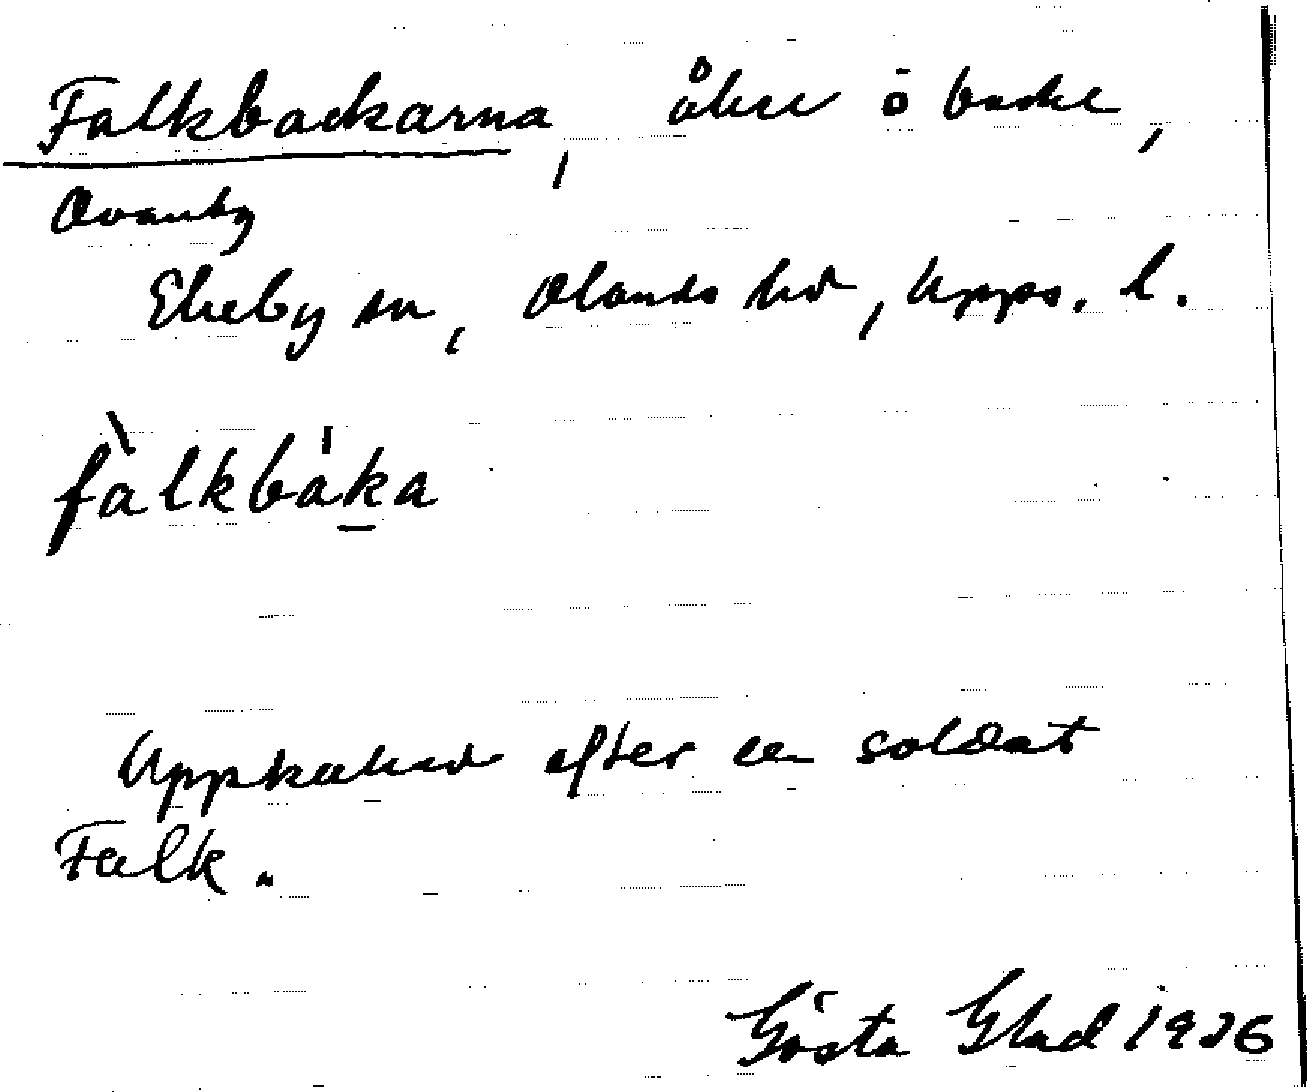 Falkbackarna, åker o backe,
Ovanby
Ekeby sn, Olands hd, Upps. l.
fàlkbáka
Uppkallad efter en soldat
Falk.
Gösta Glad 1936